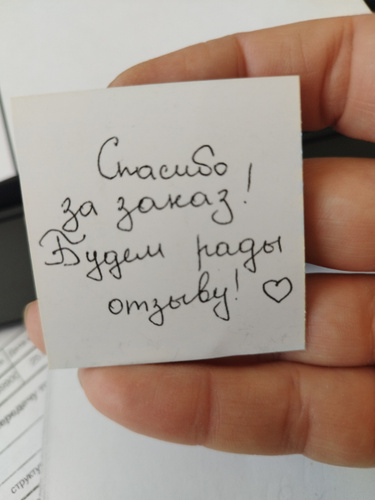 Спасибо
за заказ!
Будем рады
отзыву! ♡